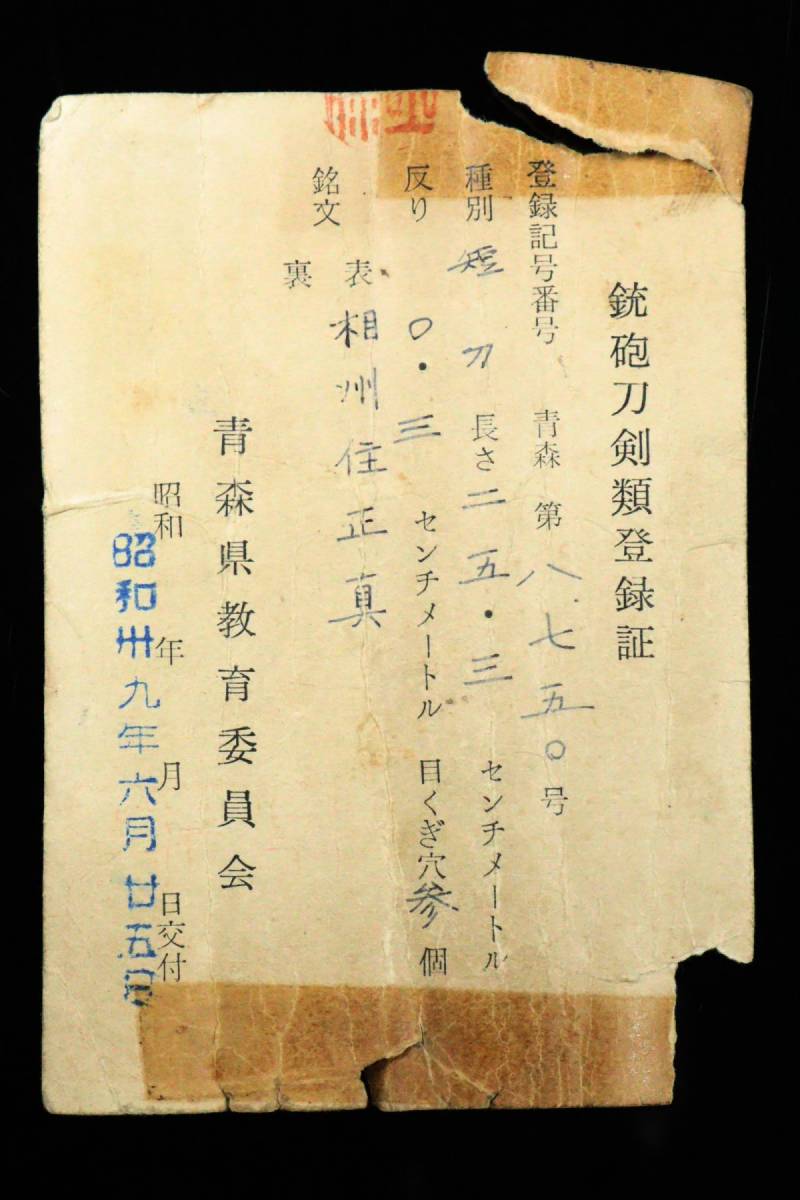 銃砲刀剣類登録証
登録記号番号 青森 第 八.七五〇号
種別 短刀 長さ 二五・三 センチメートル
反り 〇・三 センチメートル 目くぎ穴 参 個
銘文 表 相州住正真
裏
青森県教育委員会
昭和 年 月 日交付
昭和卅九年六月廿五日